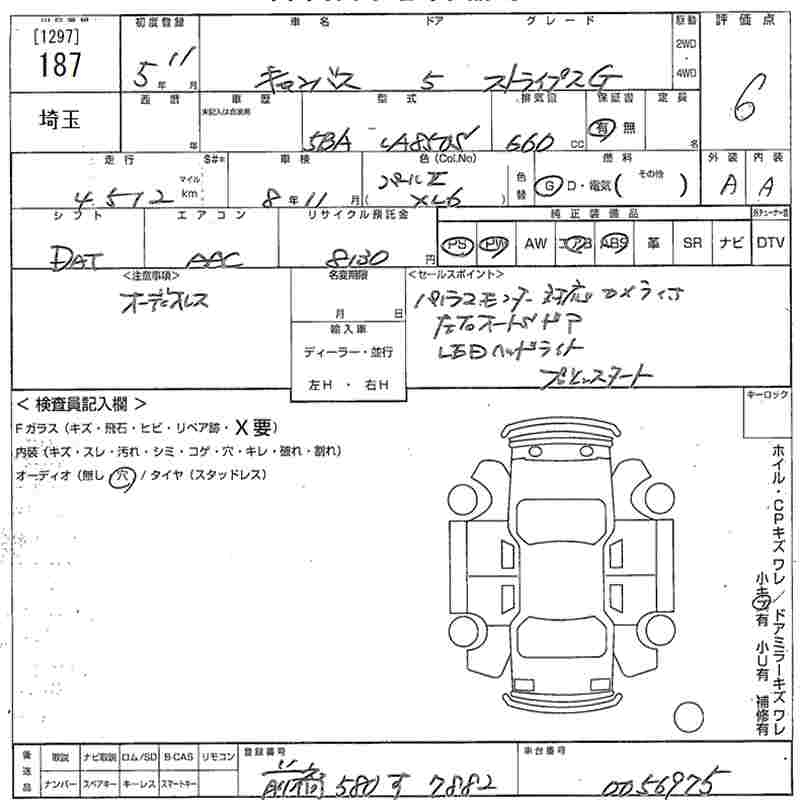 [1297]
187
埼玉
初度登録
5年 11月
車名 ドア グレード
キャンバス 5 ストライプスG
駆動
2WD
・
4WD
評価点
6
西暦
年
車歴
未記入は自家用
型式
5BA LA850S
排気量
660 cc
保証書
有 無
定員
名
走行
4512 マイル km
S#※
車検
8年 11月
色(Col.No)
パールⅡ
( X26 )
色替
燃料
G D・電気( その他 )
外装
A
内装
A
シフト
DAT
エアコン
AAC
リサイクル預託金
8130 円
純正装備品
PS PW AW エアB ABS 革 SR ナビ DTV
<注意事項>
オーディオレス
名変期限
月 日
輸入車
ディーラー・並行
左H ・ 右H
<セールスポイント>
パノラマモニター対応カメラ付
左右オートSドア
LEDヘッドライト
プッシュスタート
< 検査員記入欄 >
Fガラス(キズ・飛石・ヒビ・リペア跡・X要)
内装(キズ・スレ・汚れ・シミ・コゲ・穴・キレ・破れ・割れ)
オーディオ(無し 穴)/タイヤ(スタッドレス)
キーロック
ホイル・CPキズ ワレ/ドアミラーキズ ワレ
小キズ有 小U有 補修有
後送品
取説 ナビ取説 ロム/SD B-CAS リモコン
ナンバー スペアキー キーレス スマートキー
登録番号
前橋 580 す 7882
車台番号
0056975